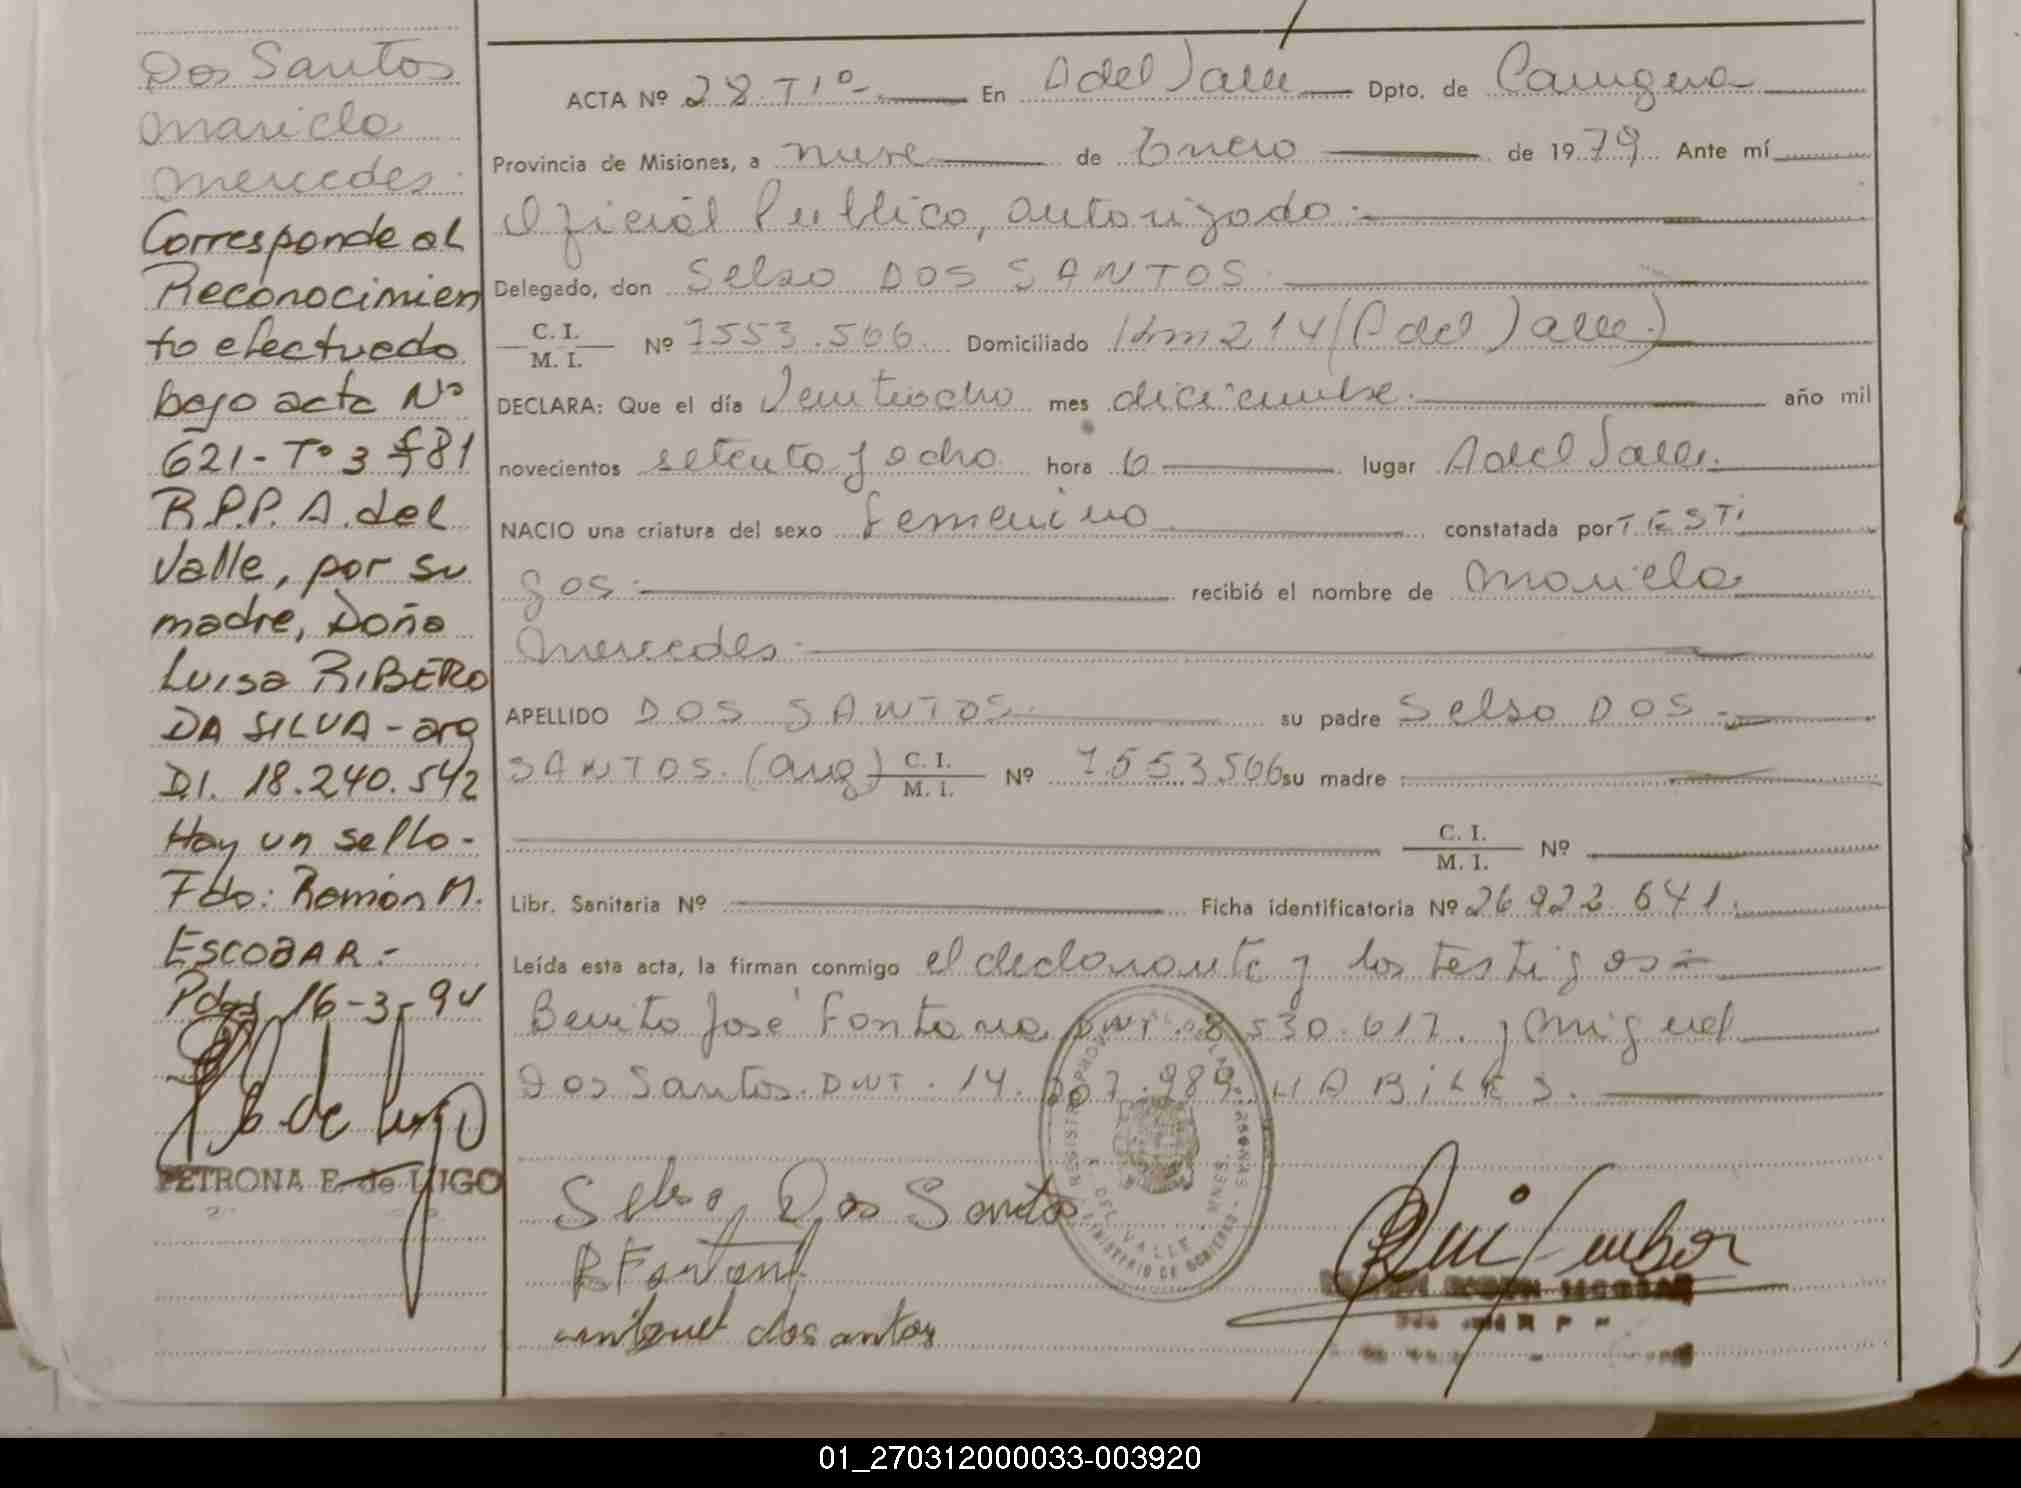 Dos Santos
Mariela
Mercedes
Corresponde al
Reconocimien
to efectuado
bajo acta Nº
621-Tº3 f81
R.P.P. A. del
Valle, por su
madre, Doña
Luisa RIBEIRO
DA SILVA - arg
D.I. 18.240.542
Hay un sello-
Fdo: Ramón M.
ESCOBAR.-
Pdas 16-3-94
PETRONA E. de LUGO
ACTA Nº 28 Tº1º En A del Valle Dpto. de Cainguas
Provincia de Misiones, a nueve de Enero de 1979 Ante mí
Oficial Publico, autorizado.
Delegado, don Selso DOS SANTOS
C. I.
M. I. Nº 7553.566 Domiciliado Km 214 (A del Valle)
DECLARA: Que el día Veintiocho mes diciciembre año mil
novecientos setenta y ocho hora 6 lugar A del Valle.
NACIO una criatura del sexo femenino constatada por TESTI
gos recibió el nombre de Mariela
Mercedes
APELLIDO DOS SANTOS su padre Selso DOS
SANTOS (arg) C. I.
M. I. Nº 7553566 su madre
C. I.
M. I. Nº
Libr. Sanitaria Nº Ficha identificatoria Nº 26.922.641.
Leída esta acta, la firman conmigo el declarante y los testigos =
Benito José Fontana DNI. 8.530.617. y Miguel
Dos Santos. DNI. 14.207.989. HABILES.
Selso Dos Santos
B Fontana
miguel dos antos
DEL VALLE MNES.
MINISTERIO DE GOBIERNO
01_270312000033-003920